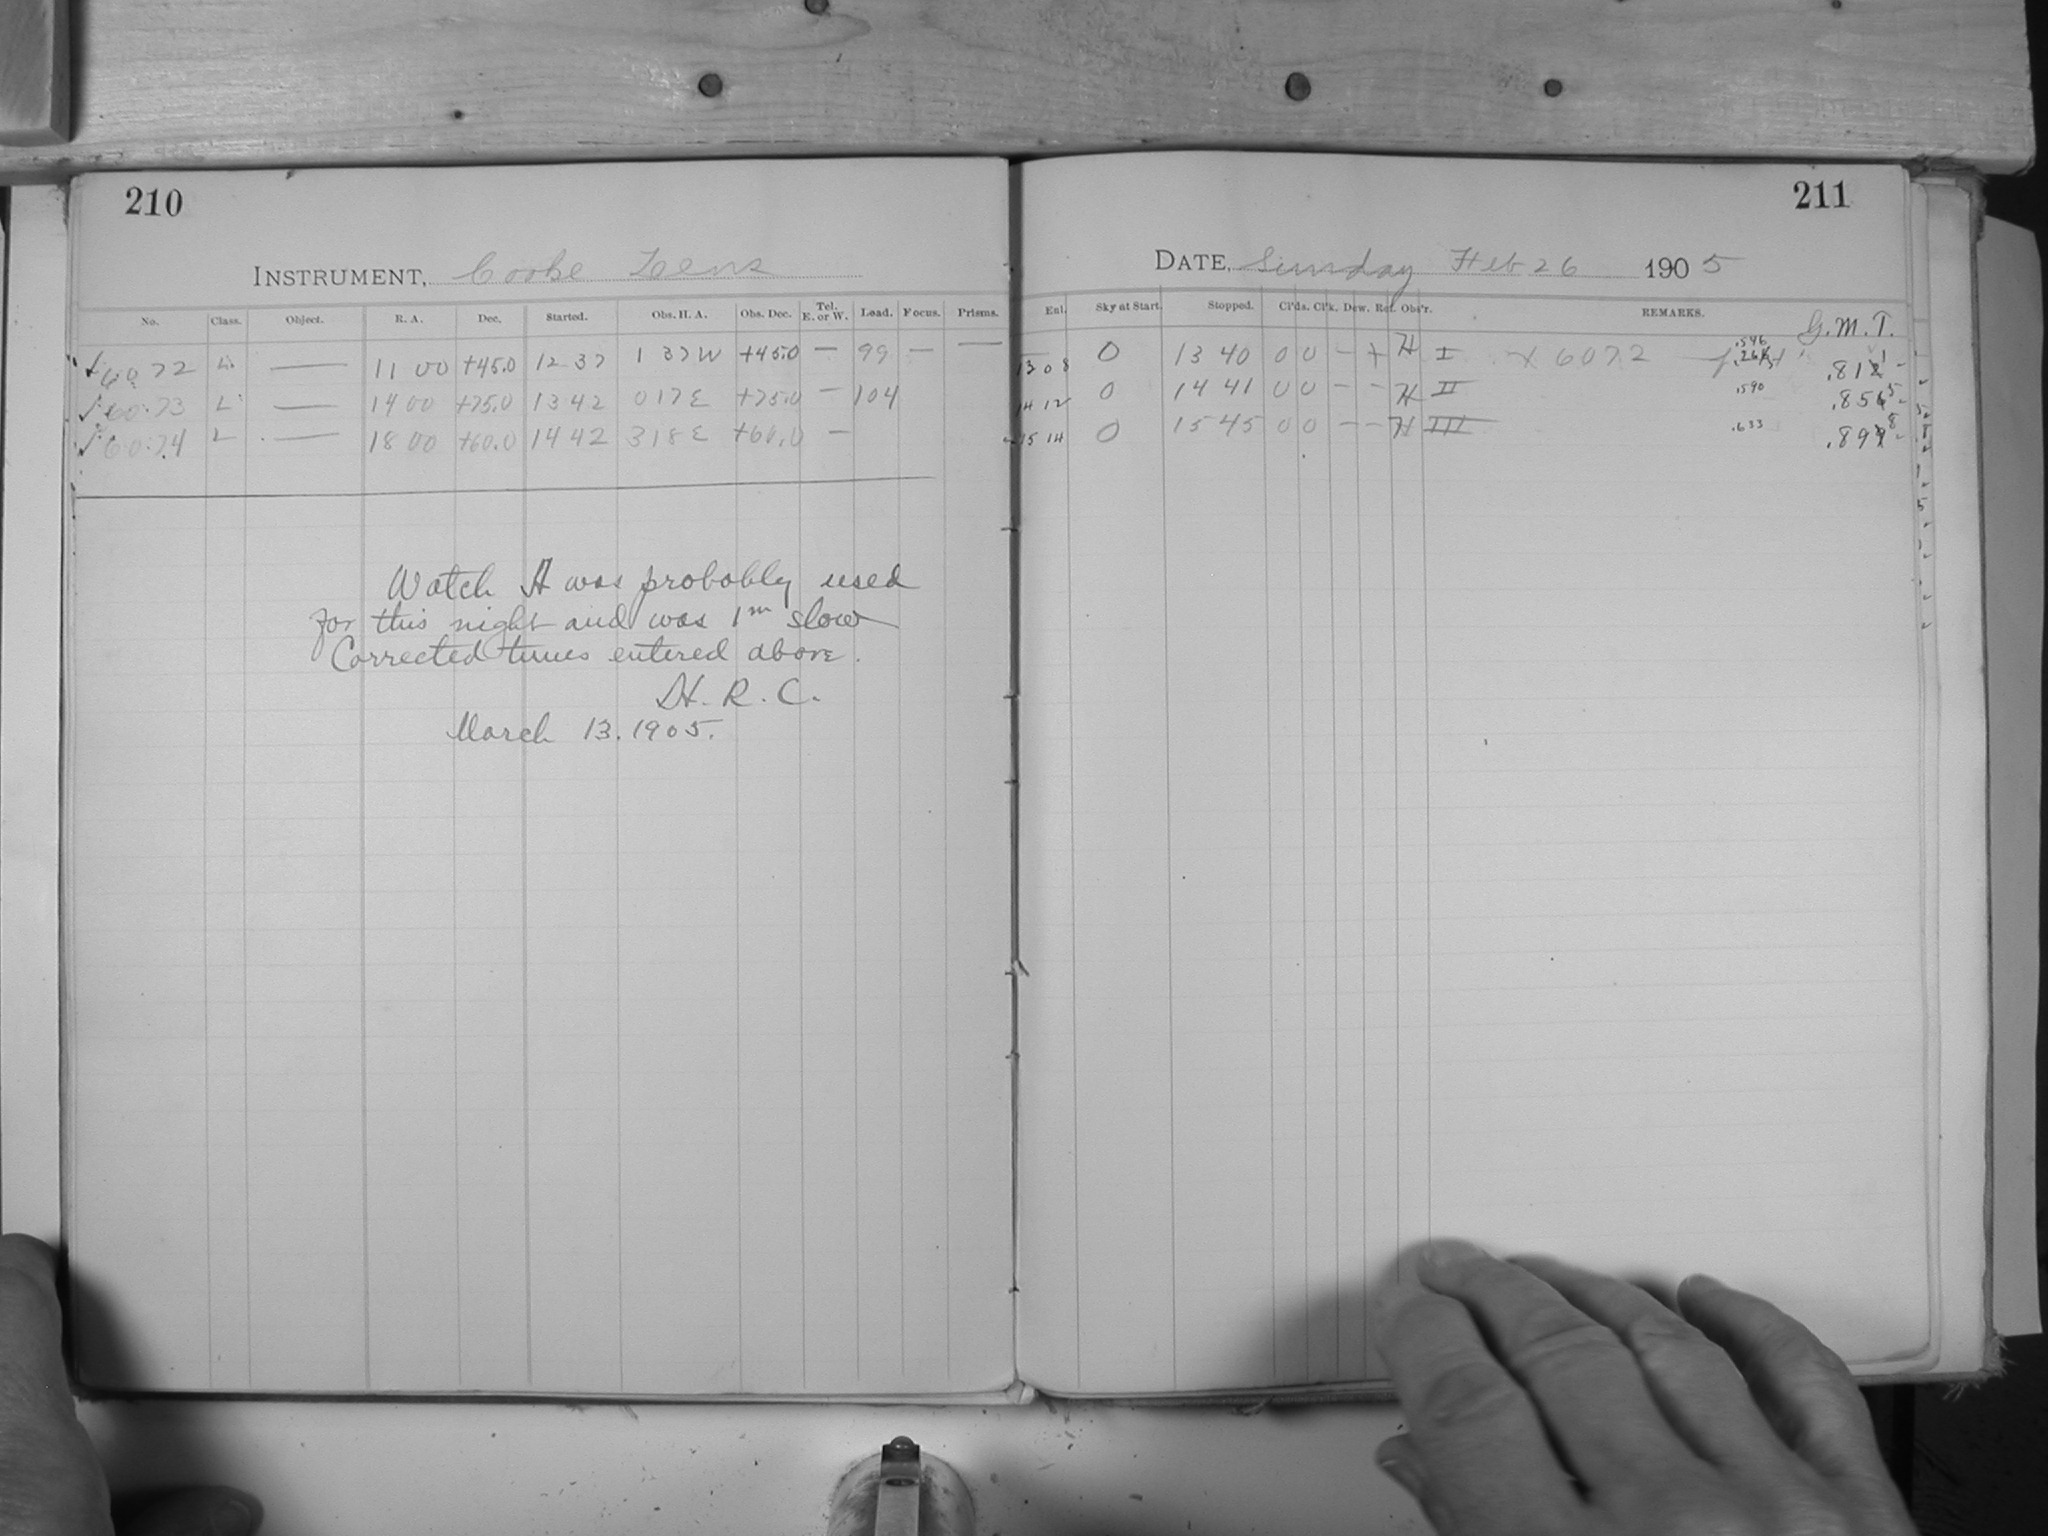 210
INSTRUMENT, Cooke Lens
No. Class. Object. R. A. Dec. Started. Obs. H. A. Obs. Dec. Tel. E. or W. Lead. Focus. Prisms.
✓ 6072 L — 11 00 +45.0 12 37 1 37 W +45.0 — 99 — —
✓ 6073 L — 14 00 +75.0 13 42 0 17 E +75.0 — 104
✓ 6074 L — 18 00 +60.0 14 42 3 18 E +60.0 —
Watch A was probably used
for this night and was 1m slow
Corrected times entered above.
H. R. C.
March 13. 1905.
211
DATE, Sunday Feb 26 1905
Enl. Sky at Start. Stopped. Cl'ds. Cl'k. Dew. Ref. Obs'r. REMARKS. G.M.T.
13 08 0 13 40 0 0 — + H I × 6072 .546 .811 -
14 12 0 14 41 0 0 — — H II .590 .855 -
15 14 0 15 45 0 0 — — H III .633 .898 -